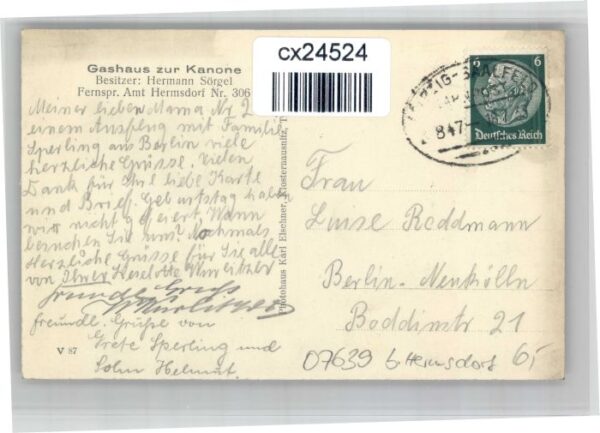 cx24524
Gashaus zur Kanone
Besitzer: Hermann Sörgel
Fernspr. Amt Hermsdorf Nr. 306
Meiner lieben Mama Nr 2
einem Ausflug mit Familie
Sperling aus Berlin viele
herzliche Grüsse. Vielen
Dank für Ihre liebe Karte
und Brief. Geburtstag haben
wir nicht gefeiert. Wann
besuchen Sie uns? Nochmals
Herzliche Grüsse für Sie alle
von Ihrer Liselotte
freundl. Gruß
freundl. Grüße von
Grete Sperling und
Sohn Helmut.
V 87
Photohaus Karl Elschner, Klosterlausnitz, T
6 6
Deutsches Reich
LEIPZIG-SAALFELD
847
Frau
Luise Roddmann
Berlin-Neukölln
Boddinstr 21
07639 b. Hermsdorf 6,-